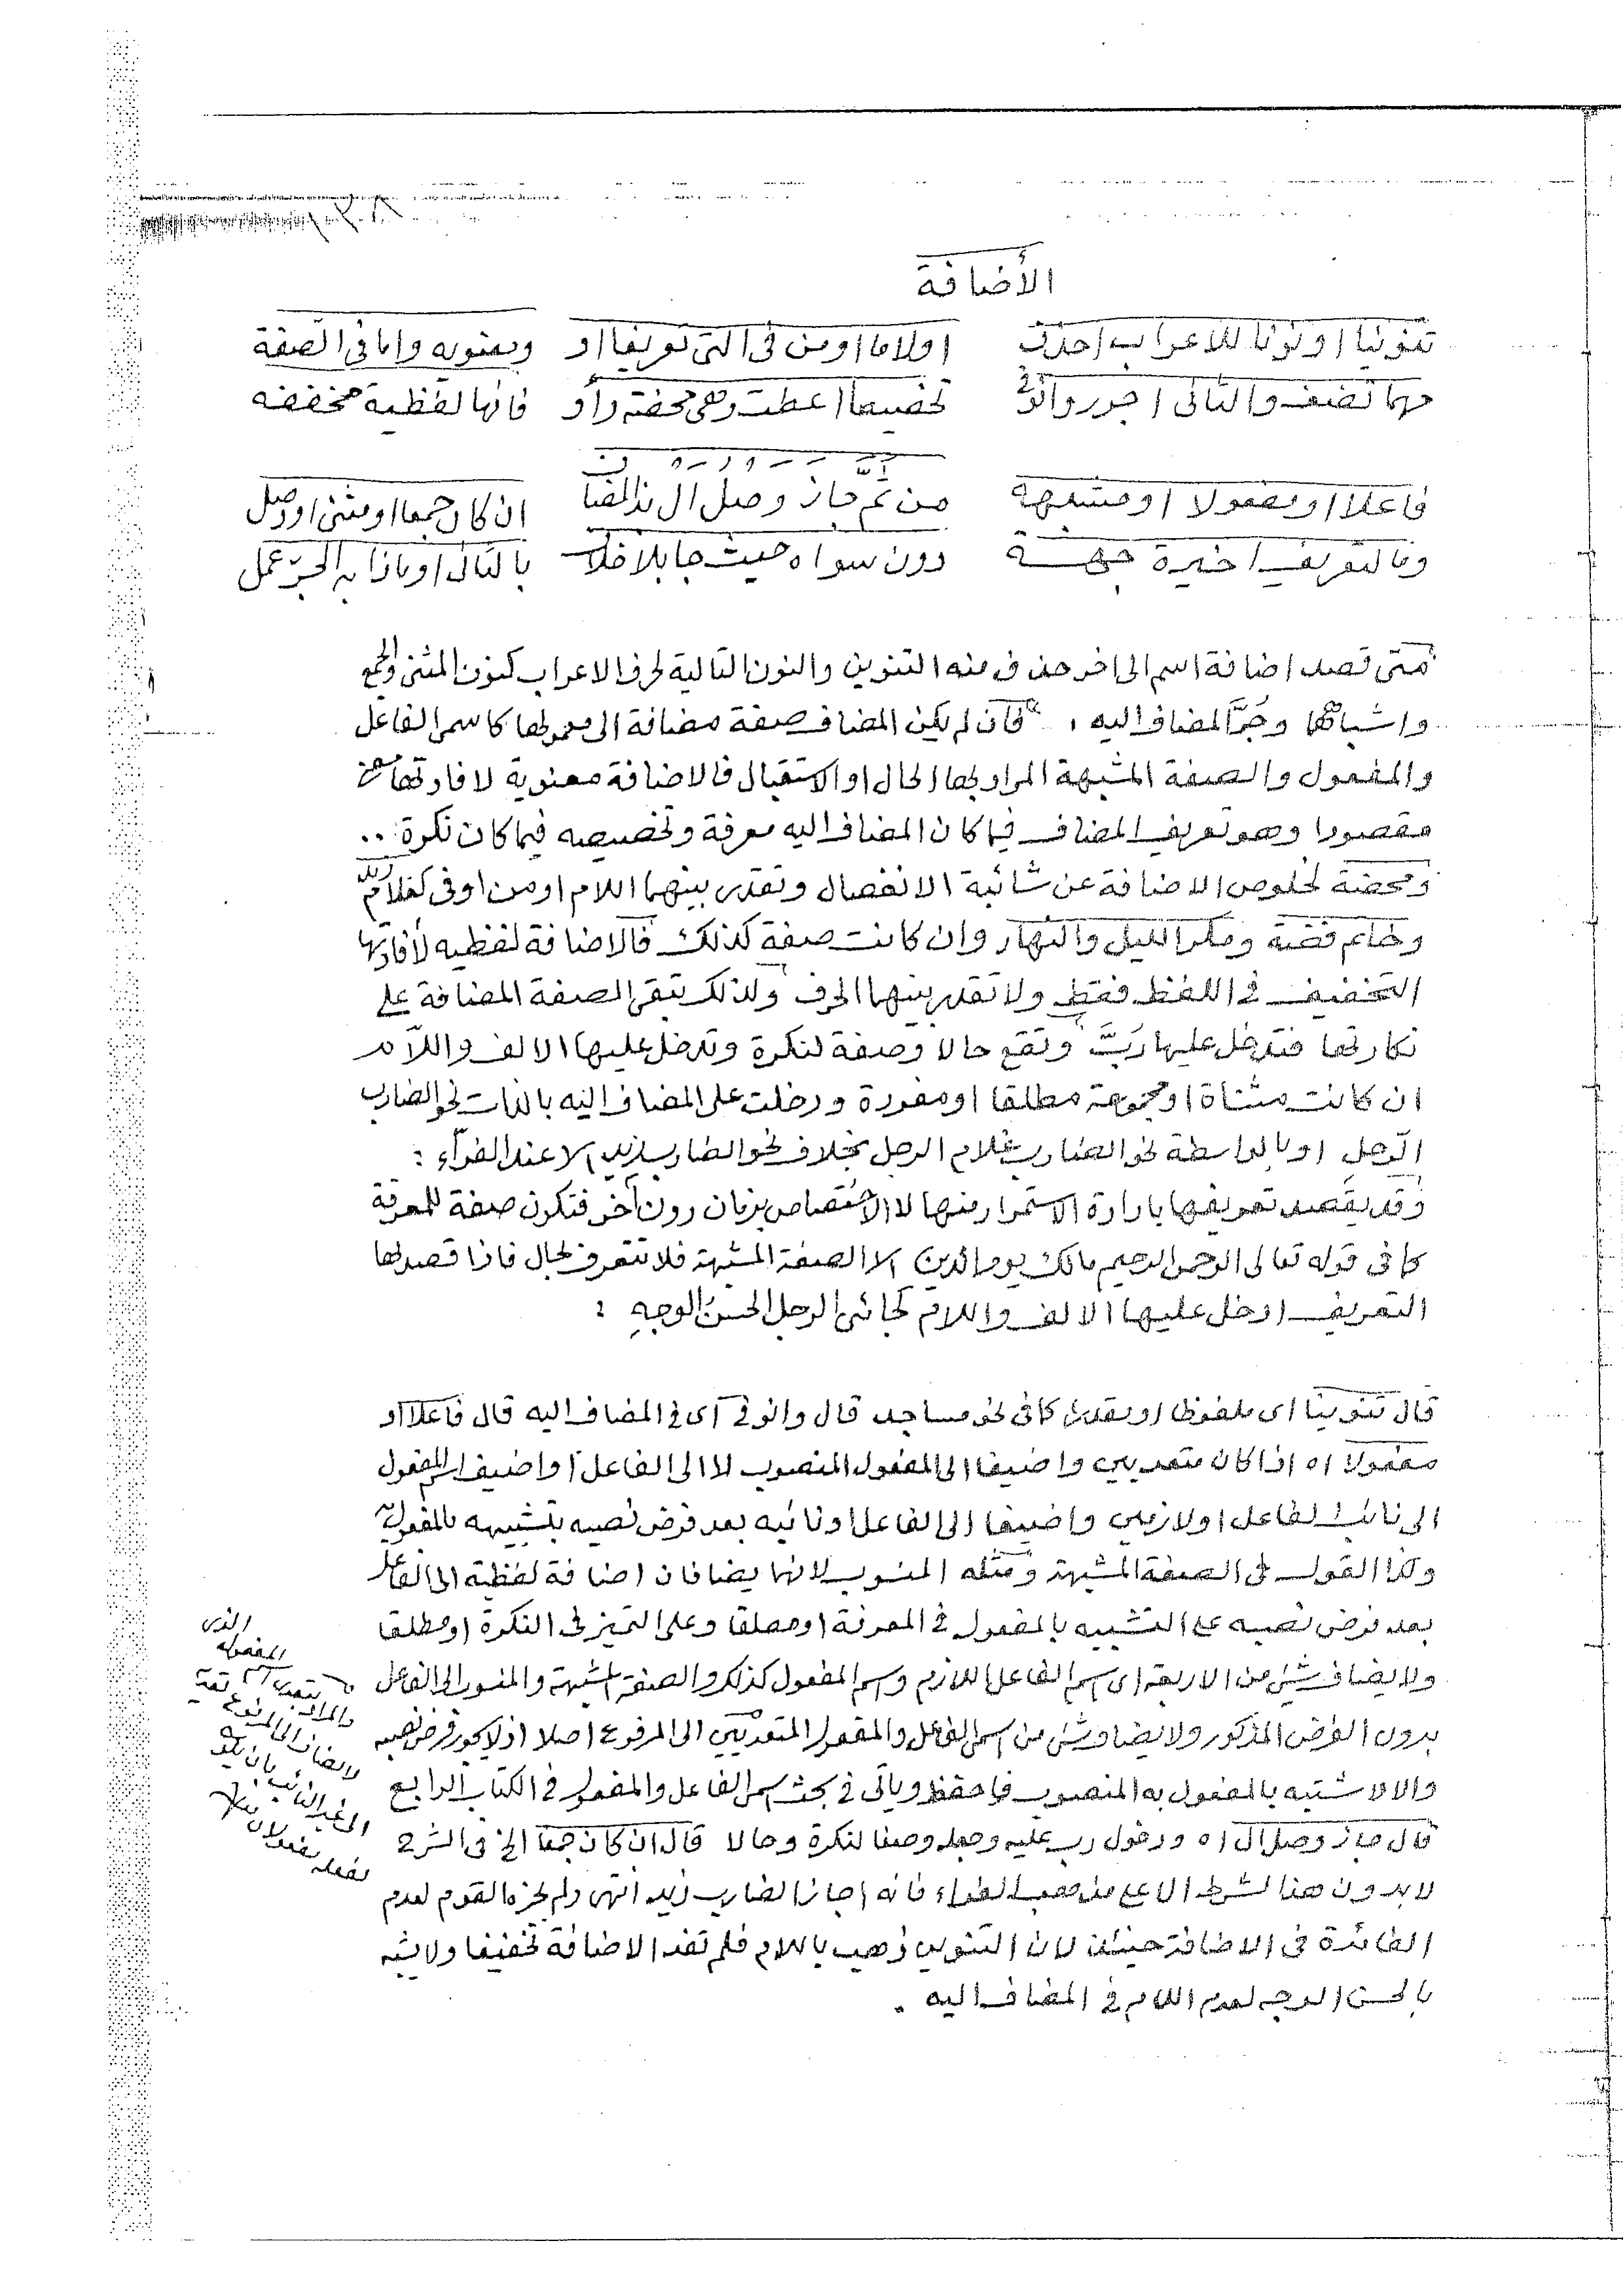 الأضافة
تنوينا او نونا للاعراب احذف اولاما او من فى التى تعريفا او ومعنويه واما فى الصفة
مهما تضف والثانى اجرر وانو فى تخصيصا اعطت وهى محضة رأو فانها لفظية مخففه
فاعلا او مفعولا او مشبهه من ثَمَّ جاز وصل ال بذا المضا ان كان جمعا او مثنى او وصل
وما لتعريف اخيرة جهة دون سواه حيث جا بلا خلاف بالثانى او ماذا به الجرّ عمل
متى قصد اضافة اسم الى اخر حذف منه التنوين والنون التالية لحرف الاعراب كنون المثنى والجمع
واشباهها وجَرَّ المضاف اليه ، فان لم يكن المضاف صفة مضافة الى معمولها كاسمى الفاعل
والمفعول والصفة المشبهة المراد بها الحال او الاستقبال فالاضافة معنوية لافادتها معنى
مقصودا وهو تعريف المضاف فيما كان المضاف اليه معرفة وتخصيصه فيما كان نكرة ..
ومحضة لخلوص الاضافة عن شائبة الانفصال وتقدر بينهما اللام او من او فى كغلام زيد
وخاتم فضة ومكر الليل والنهار وان كانت صفة كذلك فالاضافة لفظيه لأفادتها
التخفيف فى اللفظ فقط ولا تقدر بينهما الحرف ولذلك تبقى الصفة المضافة على
نكارتها فتدخل عليها رَبَّ وتقع حالا وصفة لنكرة وتدخل عليها الالف واللام
ان كانت مثناة او مجموعة مطلقا او مفردة ودخلت على المضاف اليه بالذات نحو الضارب
الرّجل او بالواسطة نحو الضارب غلام الرجل بخلاف نحو الضارب زيد الا عند الفرّاء :
وقد يقصد تعريفها بارادة الاستمرار منها لا الاختصاص بزمان دون آخر فتكون صفة للمعرفة
كما فى قوله تعالى الرحمن الرحيم مالك يوم الدين الا الصفة المشبهة فلا تتعرف بحال فاذا قصد بها
التعريف ادخل عليها الالف واللام كجائنى الرجل الحسنُ الوجهِ :
قال تنوينا اى ملفوظا او مقدرا كما فى نحو مساجد قال وانو فى اى فى المضاف اليه قال فاعلا او
مفعولا اه اذا كان متعديين واضيفا الى المفعول المنصوب لا الى الفاعل او اضيف اسم المفعول
الى نائب الفاعل او لازمين واضيفا الى الفاعل او نائبه بعد فرض نصبه بتشبيهه بالمفعول به
وكذا القول فى الصفة المشبهة ومثله المنسوب لانهما يضافان اضافة لفظية الى الفاعل
بعد فرض نصبه على التشبيه بالمفعول فى المعرفة او مطلقا وعلى التميز فى النكرة او مطلقا
ولا يضاف شئ من الاربعة اى اسم الفاعل اللازم واسم المفعول كذلك والصفة المشبهة والمنسوب الى الفاعل
بدون الفرض المذكور ولا يضاف شئ من اسمى الفاعل والمفعول المتعديين الى المرفوع اصلا اذ لا يجوز فرض نصبه
والا لاشتبه بالمفعول به المنصوب فاحفظ ويأتى فى بحث اسمى الفاعل والمفعول فى الكتاب الرابع
قال جاز وصل ال اه ودخول رب عليه وجعله وصفا لنكرة وحالا قال ان كان جمعا الخ فى الشرح
لا بدون هذا الشرط الا على مذهب الفراء فانه اجاز الضارب زيد انتهى ولم يجزه القوم لعدم
الفائدة فى الاضافة حينئذ لان التنوين ذهب باللام فلم تفد الاضافة تخفيفا ولا يشبه
بالحسن الوجه لعدم اللام فى المضاف اليه .
الذى
المفعول